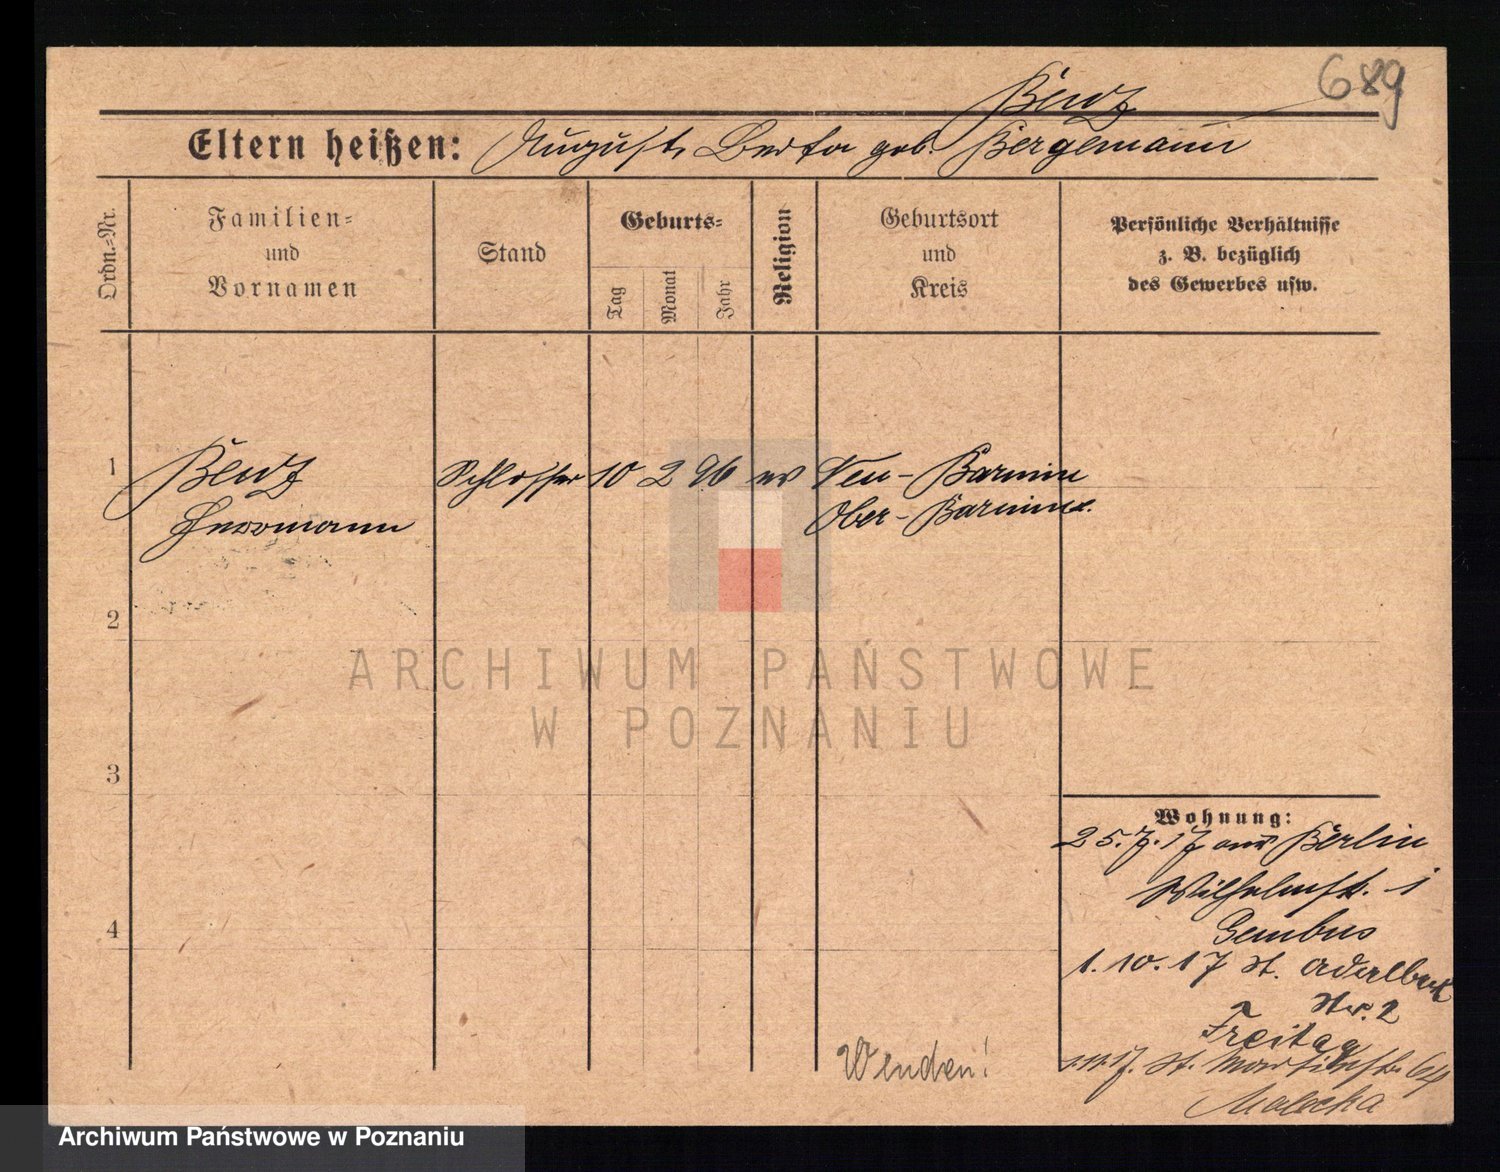 689
Benz
Eltern heißen: August, Berta geb. Bergemann
Ordn.=Nr.
Familien=
und
Vornamen
Stand
Geburts=
Tag
Monat
Jahr
Religion
Geburtsort
und
Kreis
Persönliche Verhältnisse
z. B. bezüglich
des Gewerbes usw.
1
Benz
Herrmann
Schlosser
10 2 96
ev
Neu-Barnim
Ober-Barnim
2
ARCHIWUM PAŃSTWOWE
W POZNANIU
3
4
Wohnung:
25.7.17 aus Berlin
Wilhelmstr. 1
Gembus
1.10.17 St. Adalbert
Str. 2
Freitag
1.11.17. St. Martinstr. 64
Malecka
Wenden!
Archiwum Państwowe w Poznaniu